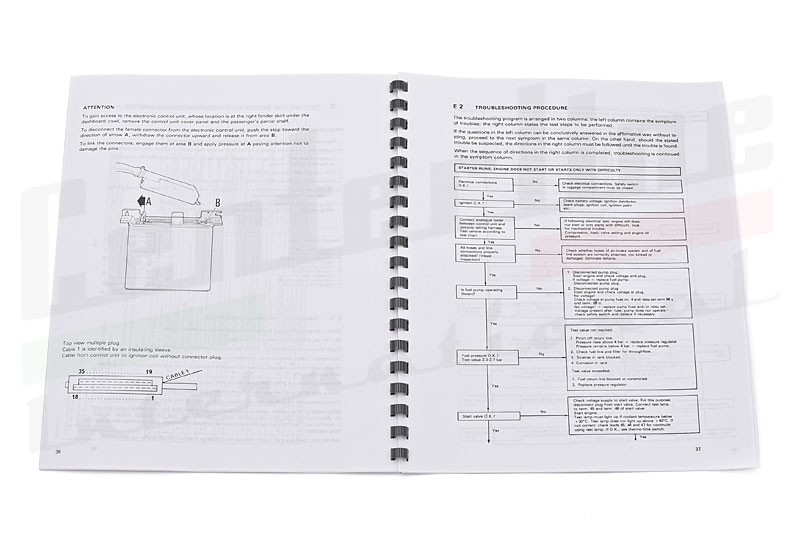 ATTENTION
To gain access to the electronic control unit, whose location is at the right fender skirt under the
dashboard cowl, remove the control unit cover panel and the passenger's parcel shelf.
To disconnect the female connector from the electronic control unit, push the stop toward the
direction of arrow A, withdraw the connector upward and release it from area B.
To link the connectors, engage them at area B and apply pressure at A paying attention not to
damage the pins.
A
B
Top view multiple plug.
Cable 1 is identified by an insulating sleeve.
Cable from control unit to ignition coil without connector plug.
35 19
CABLE 1
18 1
36
E 2 TROUBLESHOOTING PROCEDURE
The troubleshooting program is arranged in two columns: the left column contains the symptom
of troubles; the right column shows the test steps to be performed.
If the questions in the left column can be conclusively answered in the affirmative way without te-
sting, proceed to the next symptom in the same column. On the other hand, should the stated
trouble be suspected, the directions in the right column must be followed until the trouble is found.
When the sequence of directions in the right column is completed, troubleshooting is continued
in the symptom column.
STARTER RUNS, ENGINE DOES NOT START OR STARTS ONLY WITH DIFFICULTY
Electrical connections
O.K.?
No
Check electrical connections. Safety switch
in luggage compartment must be closed.
Yes
Ignition O.K.?
No
Check battery voltage, ignition distributor,
spark plugs, ignition coil, ignition point
etc.
Yes
Connect analogue tester
between control unit and
electronic wiring harness.
Test service according to
test chart.
No
If following electrical test, engine still does
not start or only starts with difficulty, look
for mechanical trouble:
Compression, basic valve setting and engine oil
pressure.
Yes
All hoses and line
connections properly
attached? (visual
inspection)
No
Check whether hoses of air-intake system and all fuel
line system are correctly attached, not kinked or
damaged. Eliminate defects.
Yes
Is fuel pump operating
(noise)?
No
1. Disconnected pump plug.
Start engine and check voltage and plug.
If voltage = replace fuel pump.
Disconnected pump plug.
2. Disconnected pump plug.
Start engine and check voltage at plug.
No voltage?
Check voltage at pump fuse no. 4 and relay set term.
and term.
No voltage? = replace pump fuse and/or relay set.
Voltage present after fuse, pump does not operate -
check safety switch and replace if necessary.
Yes
Fuel pressure O.K.?
Test value 2.3-2.7 bar
No
Test value not reached:
1. Pinch off return line:
Pressure rises above 4 bar = replace pressure regulator
Pressure remains below 4 bar = replace fuel pump.
2. Check fuel line and filter for throughflow.
3. Strainer in tank blocked.
4. Corrosion in tank.
Test value exceeded:
1. Fuel return line blocked or constricted.
2. Replace pressure regulator.
Yes
Start valve O.K.?
No
Check voltage supply to start valve. For this purpose,
disconnect plug from start valve. Connect test lamp
to term. 45 and term. 46 of start valve.
Start engine.
Test lamp must light up if coolant temperature below
+30°C. Test lamp does not light up above +40°C. If
not correct: check leads 45, 46 and 47 for continuity
using test lamp. If O.K., see thermo-time switch.
Yes
Yes
37